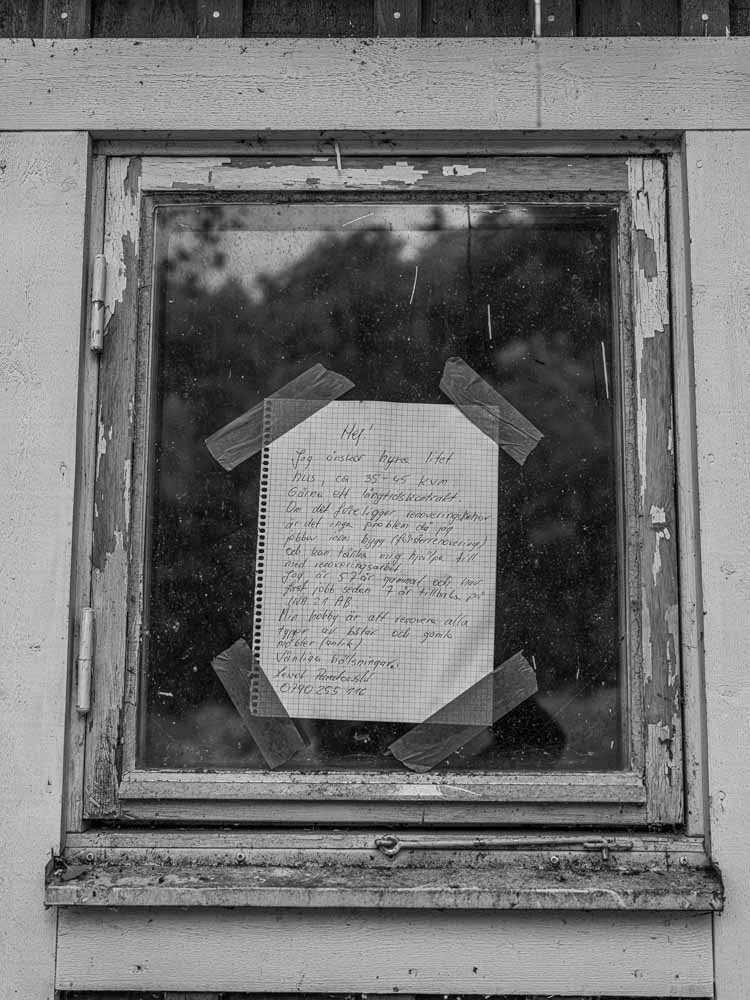 Hej!
Jag önskar hyra litet
hus, ca 35-45 kvm
Gärna ett långtidskontrakt.
Om det föreligger renoveringsbehov
är det inga problem då jag
jobbar inom bygg (fönsterrenovering)
och kan tänka mig hjälpa till
med renoveringsarbet
Jag är 57 år gammal och har
fast jobb sedan 7 år tillbaka på
21 AB
Min hobby är att renovera alla
typer av båtar och gamla
möbler (antik)
Vänliga hälsningar,
0790 255 116